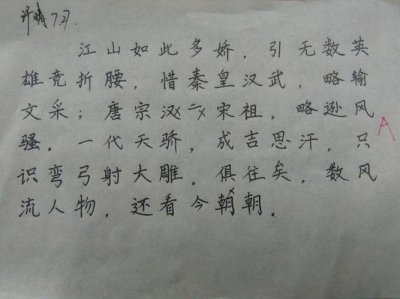 许 7.27.
江山如此多娇，引无数英
雄竞折腰，惜秦皇汉武，略输
文采；唐宗宋祖，略逊风
骚。一代天骄，成吉思汗，只
识弯弓射大雕。俱往矣，数风
流人物，还看今朝。
A